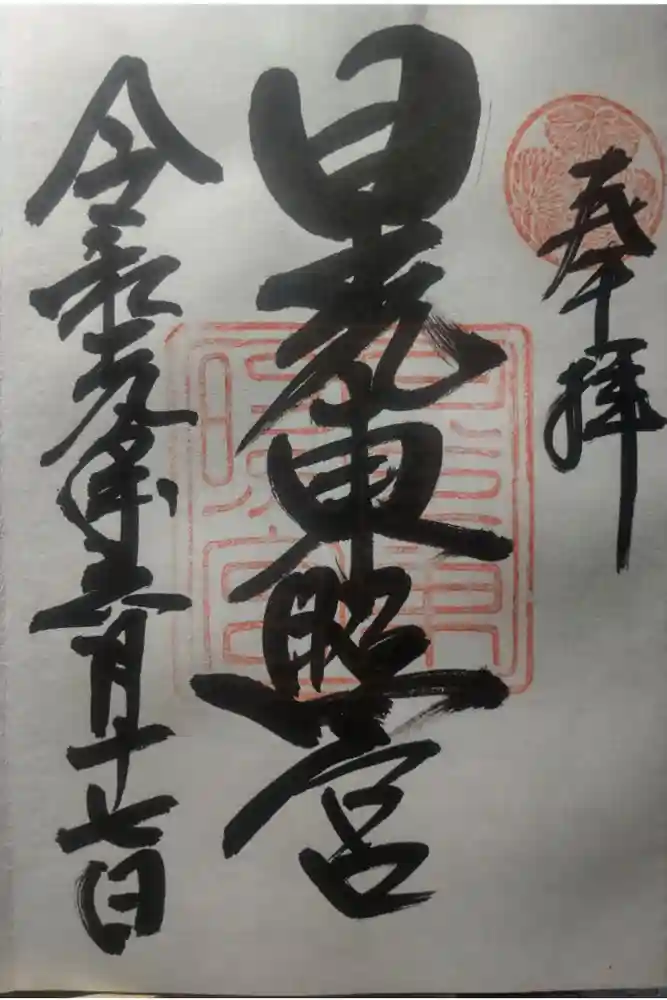 奉拝
日光東照宮
令和元年六月十七日